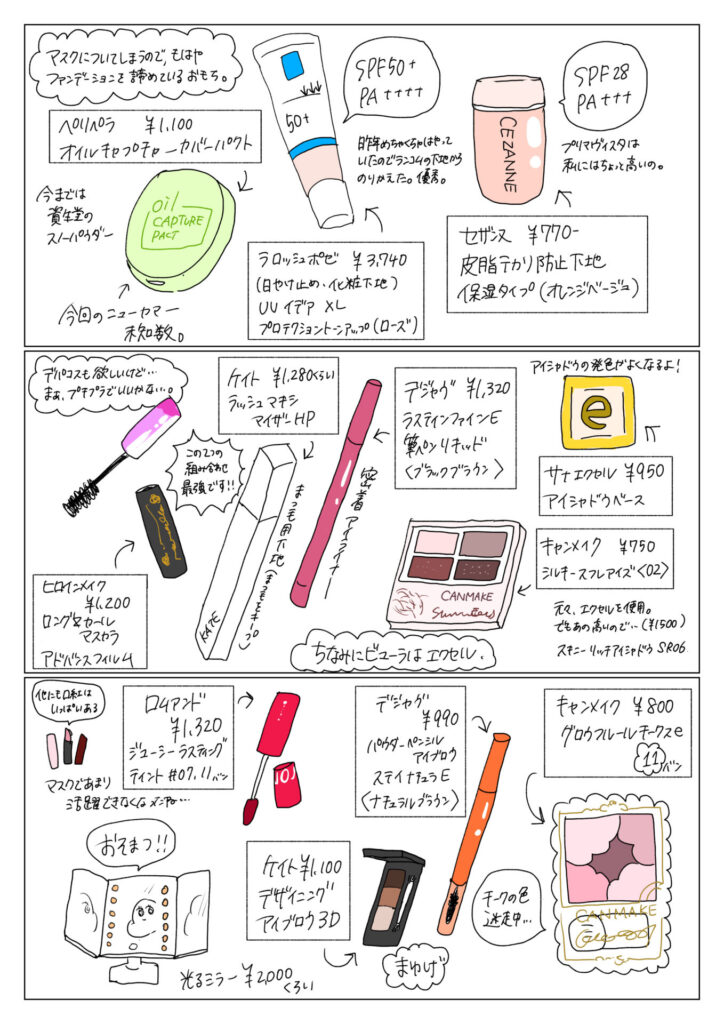 マスクについてしまうので、もはや
ファンデーションを諦めているおもち。
ペリペラ ¥1,100
オイルキャプチャーカバーパクト
今までは
資生堂の
スノーパウダー
oil
CAPTURE
PACT
今回のニューカマー
未知数。
50+
SPF50+
PA++++
昨年めちゃくちゃはやって
いたのでランコムの下地から
のりかえた。優秀。
ラロッシュポゼ ¥3,740
(日やけ止め、化粧下地)
UVイデア XL
プロテクショントーンアップ(ローズ)
CEZANNE
SPF28
PA+++
プリマヴィスタは
私にはちょっと高いの。
セザンヌ ¥770-
皮脂テカリ防止下地
保湿タイプ(オレンジベージュ)
デパコスも欲しいけど…
まぁ、プチプラでいいかな…。
この2つの
組み合わせ
最強です!!
ヒロインメイク
¥1,200
ロング&カール
マスカラ
アドバンスフィルム
ケイト ¥1,280くらい
ラッシュマキシ
マイザーHP
KATE
まつ毛用下地(まつ毛をキープ)
密着アイライナー
デジャヴ ¥1,320
ラスティンファインE
筆ペンリキッド
<ブラックブラウン>
アイシャドウの発色がよくなるよ!
e
サナエクセル ¥950
アイシャドウベース
CANMAKE
キャンメイク ¥750
シルキースフレアイズ<02>
元々、エクセルを使用。
でもあの高いので…(¥1500)
スキニーリッチアイシャドウ SR06
ちなみにビューラはエクセル。
他にも口紅は
いっぱいある
マスクであまり
活躍できなくな
ロムアンド
¥1,320
ジューシーラスティング
ティント #07.11バン
デジャヴ
¥990
パウダーペンシル
アイブロウ
ステイナチュラE
<ナチュラルブラウン>
キャンメイク ¥800
グロウフルールチークスe
11バン
おそまつ!!
光るミラー ¥2,000
くらい
ケイト ¥1,100
デザイニング
アイブロウ3D
まゆげ
チークの色
迷走中…
CANMAKE